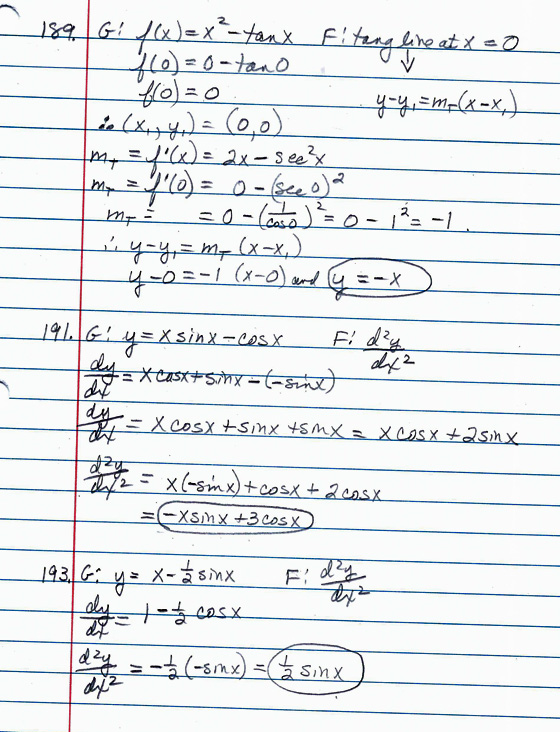 189. G: f(x) = x² - tanx F: tang line at x = 0
f(0) = 0 - tan0 ↓
f(0) = 0 y - y₁ = m_T (x - x₁)
∴ (x₁, y₁) = (0,0)
m_T = f'(x) = 2x - sec²x
m_T = f'(0) = 0 - (sec 0)²
m_T = = 0 - (1/cos0)² = 0 - 1² = -1.
∴ y - y₁ = m_T (x - x₁)
y - 0 = -1 (x - 0) and y = -x
191. G: y = x sinx - cosx F: d²y/dx²
dy/dx = x cosx + sinx - (-sinx)
dy/dx = x cosx + sinx + sinx = x cosx + 2sinx
d²y/dx² = x(-sinx) + cosx + 2cosx
= -xsinx + 3cosx
193. G: y = x - ½ sinx F: d²y/dx²
dy/dx = 1 - ½ cosx
d²y/dx² = -½ (-sinx) = ½ sinx